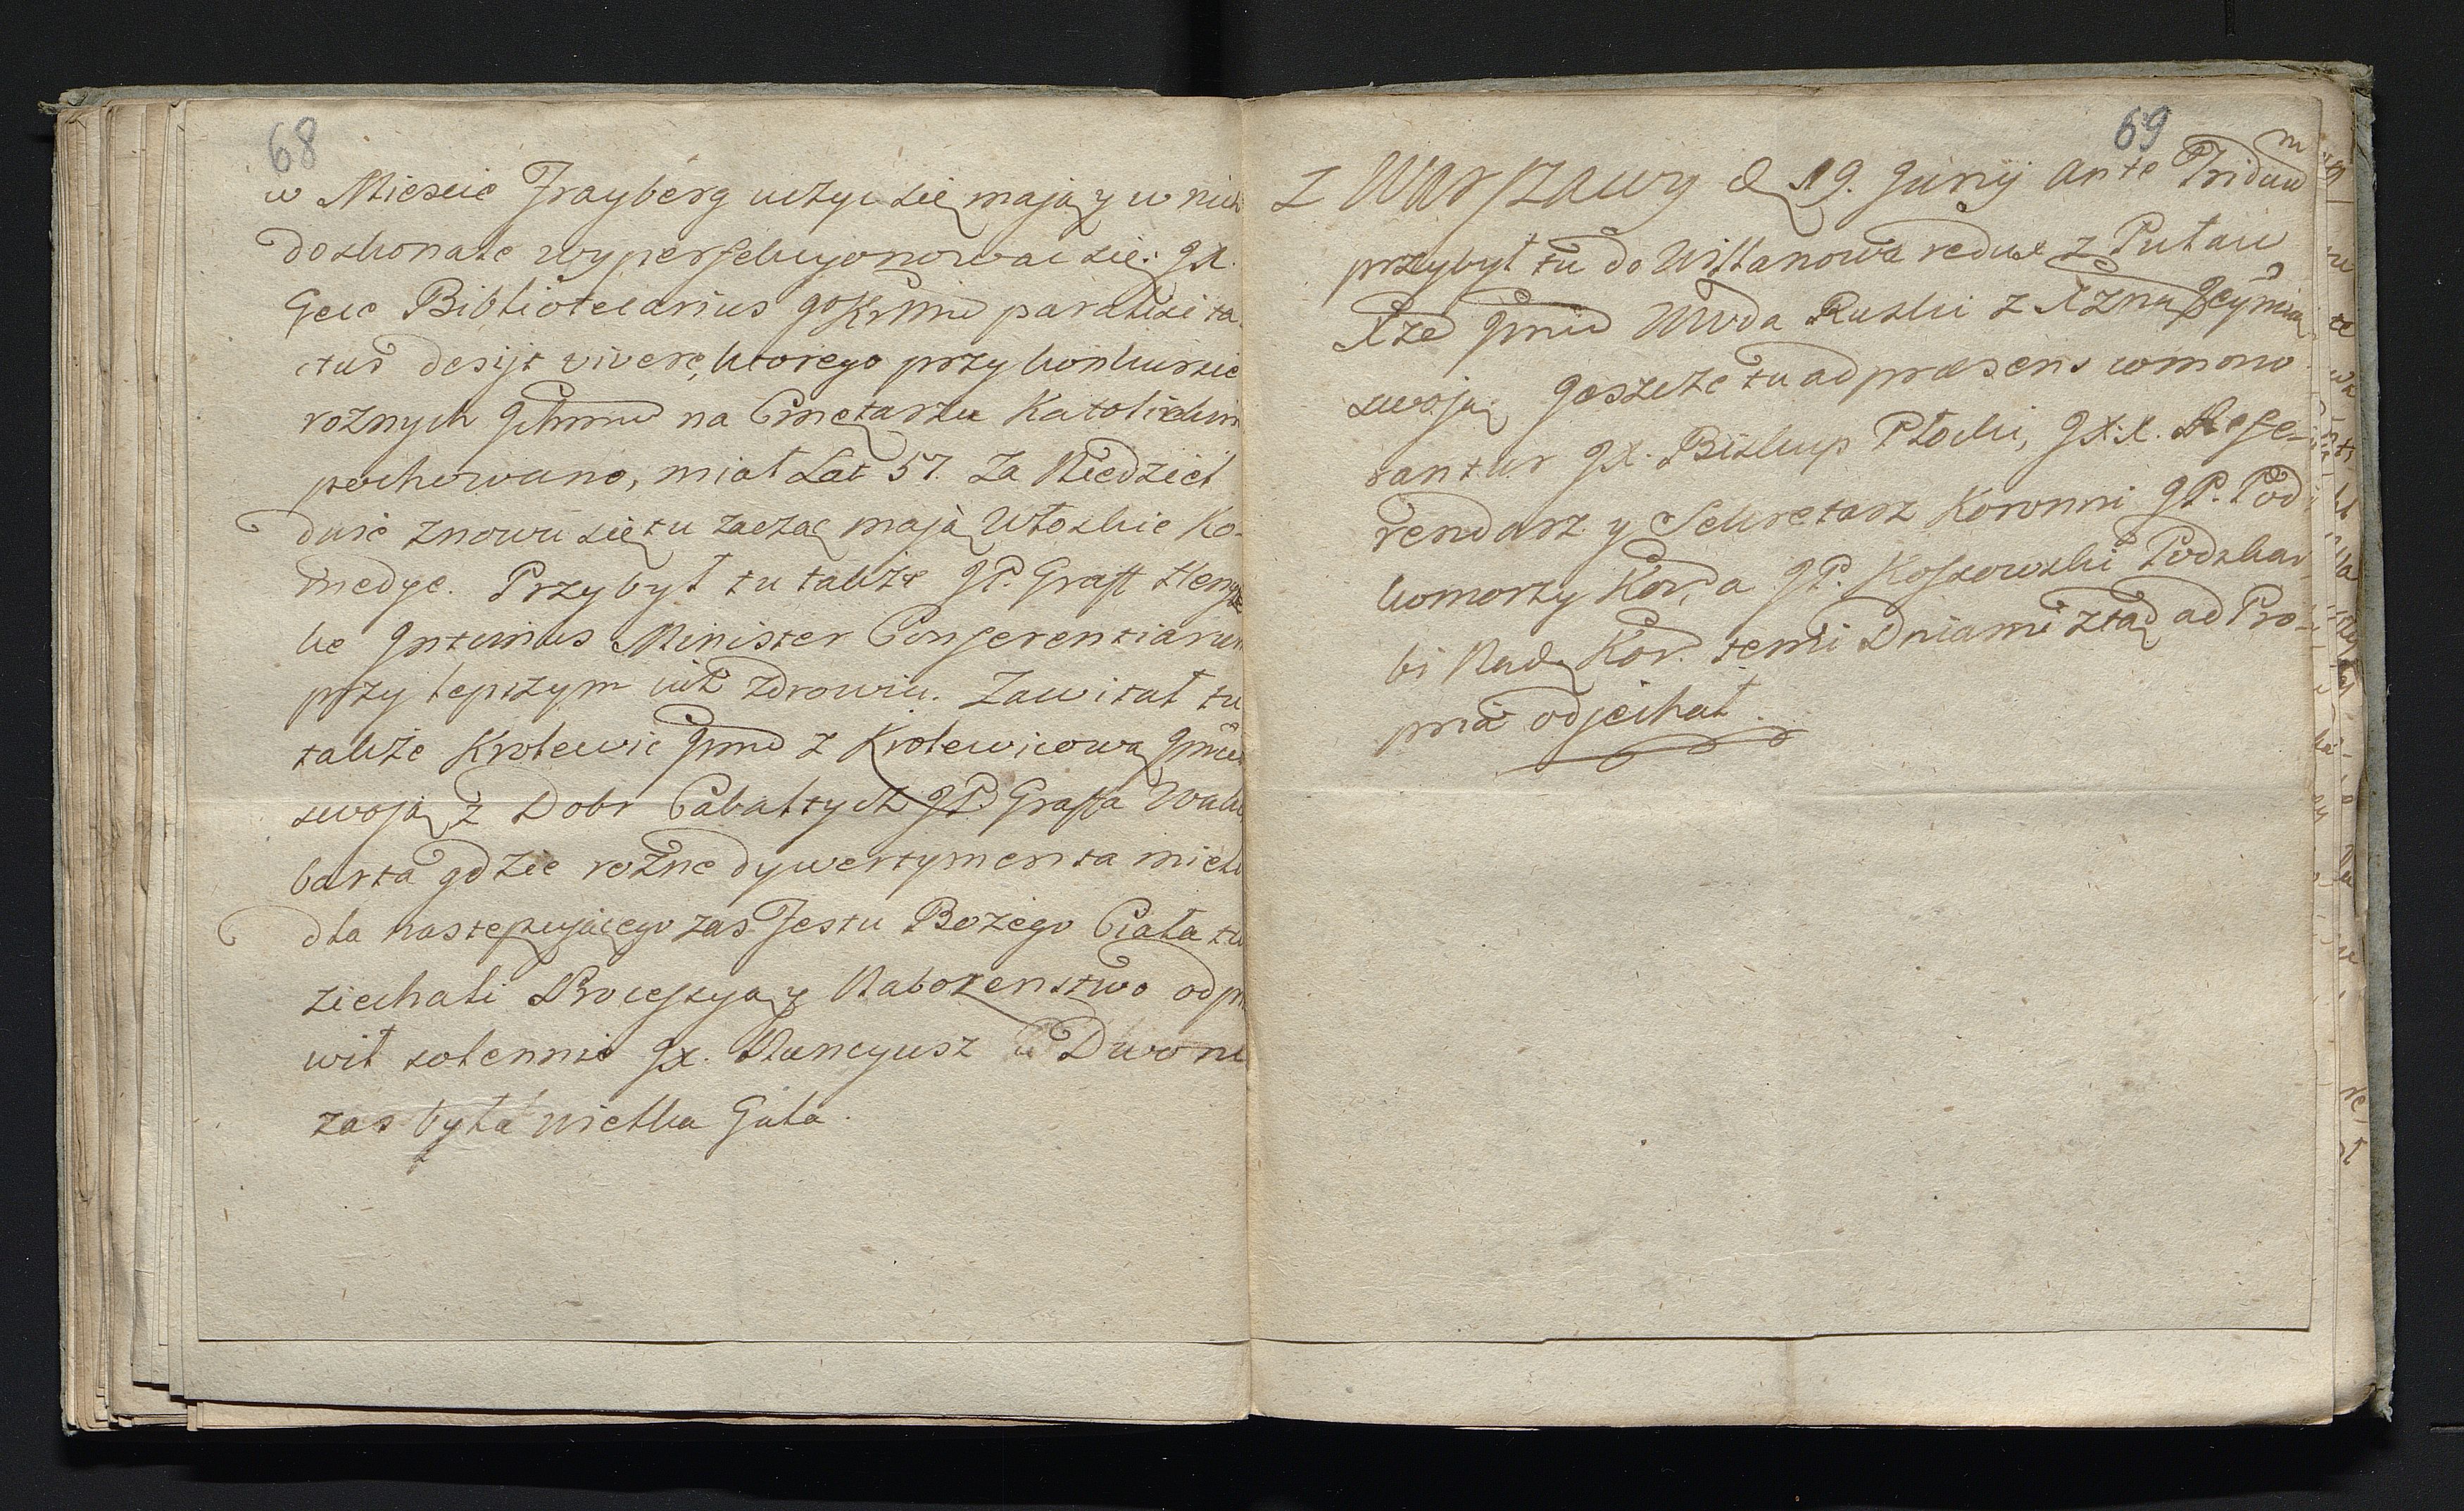 68
w Miescie Frayberg uczyc się mają y w nich
doskonale wyperfekcyonowac się. JX.
Gele Bibliotecarius JoKrMści paralisi ta-
ctus desijt vivere, ktorego przy konkursie
roznych Ichmciow na Cmętarzu Katolickim
pochowano, miał Lat 57. Za Niedziel
dwie znowu się tu zacząc mają Włoskie Ko-
medye. Przybył tu także JP. Graff Henni-
ke Intimus Minister Conferentiarum
przy lepszym iuż zdrowiu. Zawitał tu
także Krolewic Jmc z Krolewicową Jmcią
swoją z Dobr Cabalnych JP. Graffa Waker
barta gdzie rożne dywertymenta mieli
dla następującego zas Festu Bożego Ciała tu
ziechali Processyą y Nabożenstwo odpra
wił solennie JX. Nuncyusz u Dworu
zas była wielka Gala.
69
z Warszawy d 19. Junij Ante Triduum
przybył tu do Willanowa redux z Puław
Xże Jmc Wwda Ruski z Xżną Jeymcią
swoją. Jeszcze tu ad præsens commo-
rantur JX. Biskup Płocki, JX.X. Refe-
rendarz y Sekretarz Koronni JP. Pod
komorzy Kor, a JP. Kossowski Podskar
bi Nad. Kor. temi Dniami ztąd ad Pro-
pria odjechał.